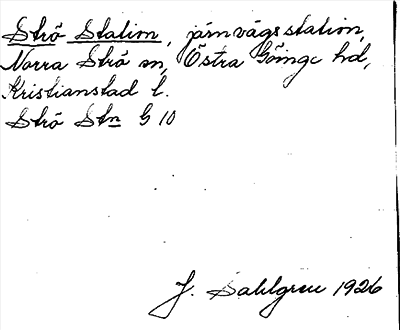 Strö Station, järnvägsstation,
Norra Strö sn, Östra Göinge hd,
Kristianstad l.
Strö Stn G 10
J. Sahlgren 1926